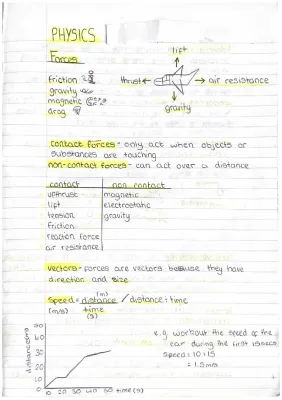 PHYSICS
Forces
lift
friction
thrust
air resistance
gravity
magnetic
drag
gravity
contact forces - only act when objects or
substances are touching
non-contact forces - can act over a distance
contact
non contact
upthrust
magnetic
lift
electrostatic
tension
gravity
friction
reaction force
air resistance
vectors - forces are vectors because they have
direction and size
speed = distance / distance ÷ time
(m)
(m/s)
time
(s)
e.g. workout the speed of the
car during the first 15secs
speed = 10 ÷ 15
= 1.5m/s
30
20
10
0
0 20 30 40 50 time (s)